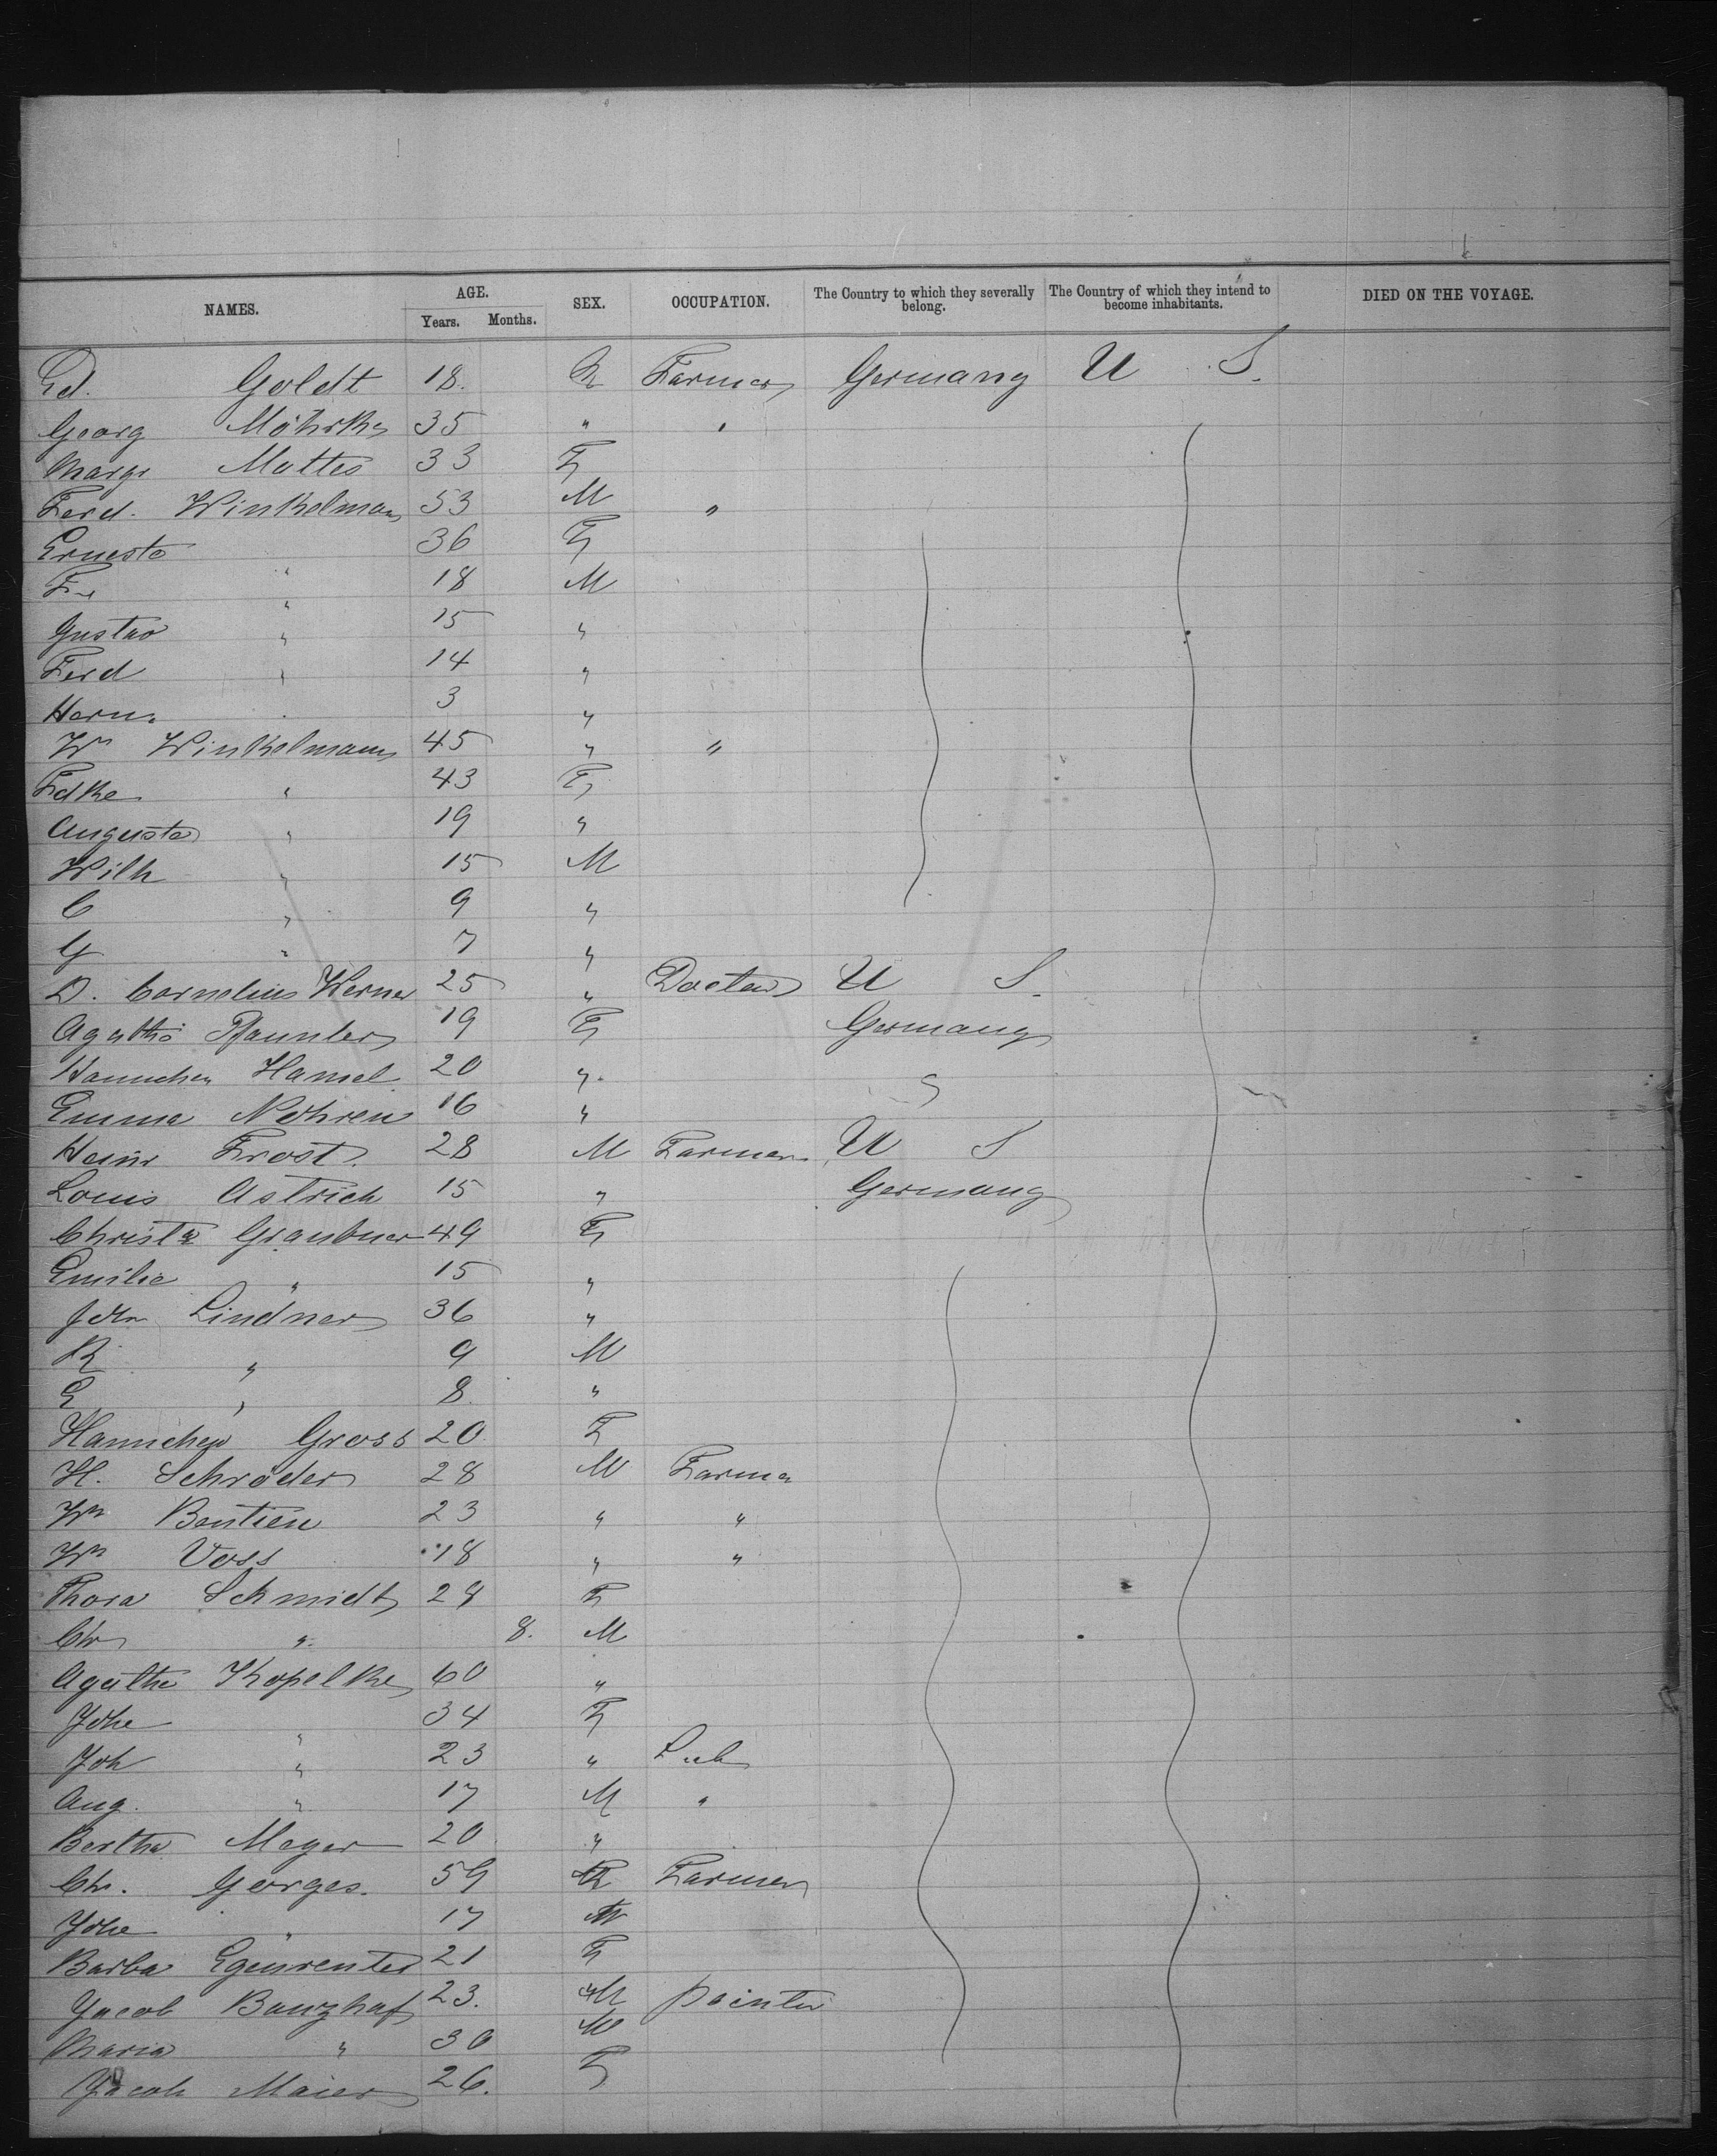 NAMES. AGE. Years. Months. SEX. OCCUPATION. The Country to which they severally belong. The Country of which they intend to become inhabitants. DIED ON THE VOYAGE.
Ed. Goldt 18. M Farmer Germany U S.
Georg 35 " "
Margr Mattes 33 F
Ferd. Winkelmann 53 M "
Ernesto " 36 F
Fr " 18 M
Gustav " 15 "
Ferd " 14 "
Herm. " 3 "
Wm Winkelmann 45 " "
Fdke " 43 F
Augusta " 19 "
Wilh " 15 M
C " 9 "
G " 7 "
D. Cornelius Werner 25 " Doctor U S.
Agathe 19 F Germany
Hannchen Hansel 20 "
Emma Nohren 16 "
Heinr Frost. 28 M Farmer U S
Louis Astrich 15 " Germany
Christe Graubner 49 F
Emilie " 15 "
Lindner 36 "
R " 9 M
E " 8. "
Hannchen Gross 20 F
H. Schröder 28 M Farmer
Wm Bentien 23 " "
Wm Voss 18 " "
Thora Schmidt 28 F
Chr " 8. M
Agathe Kopelke 60 "
Johe " 34 F
Joh " 23 " Lab
Aug. " 17 M "
Bertha Meyer 20 "
Chr. Georges. 59 Farmer
Johe " 17 M
Barba 21 F
Jacob Banzhaf 23. M painter
Maria " 30 M
Jacob Maier 26. F